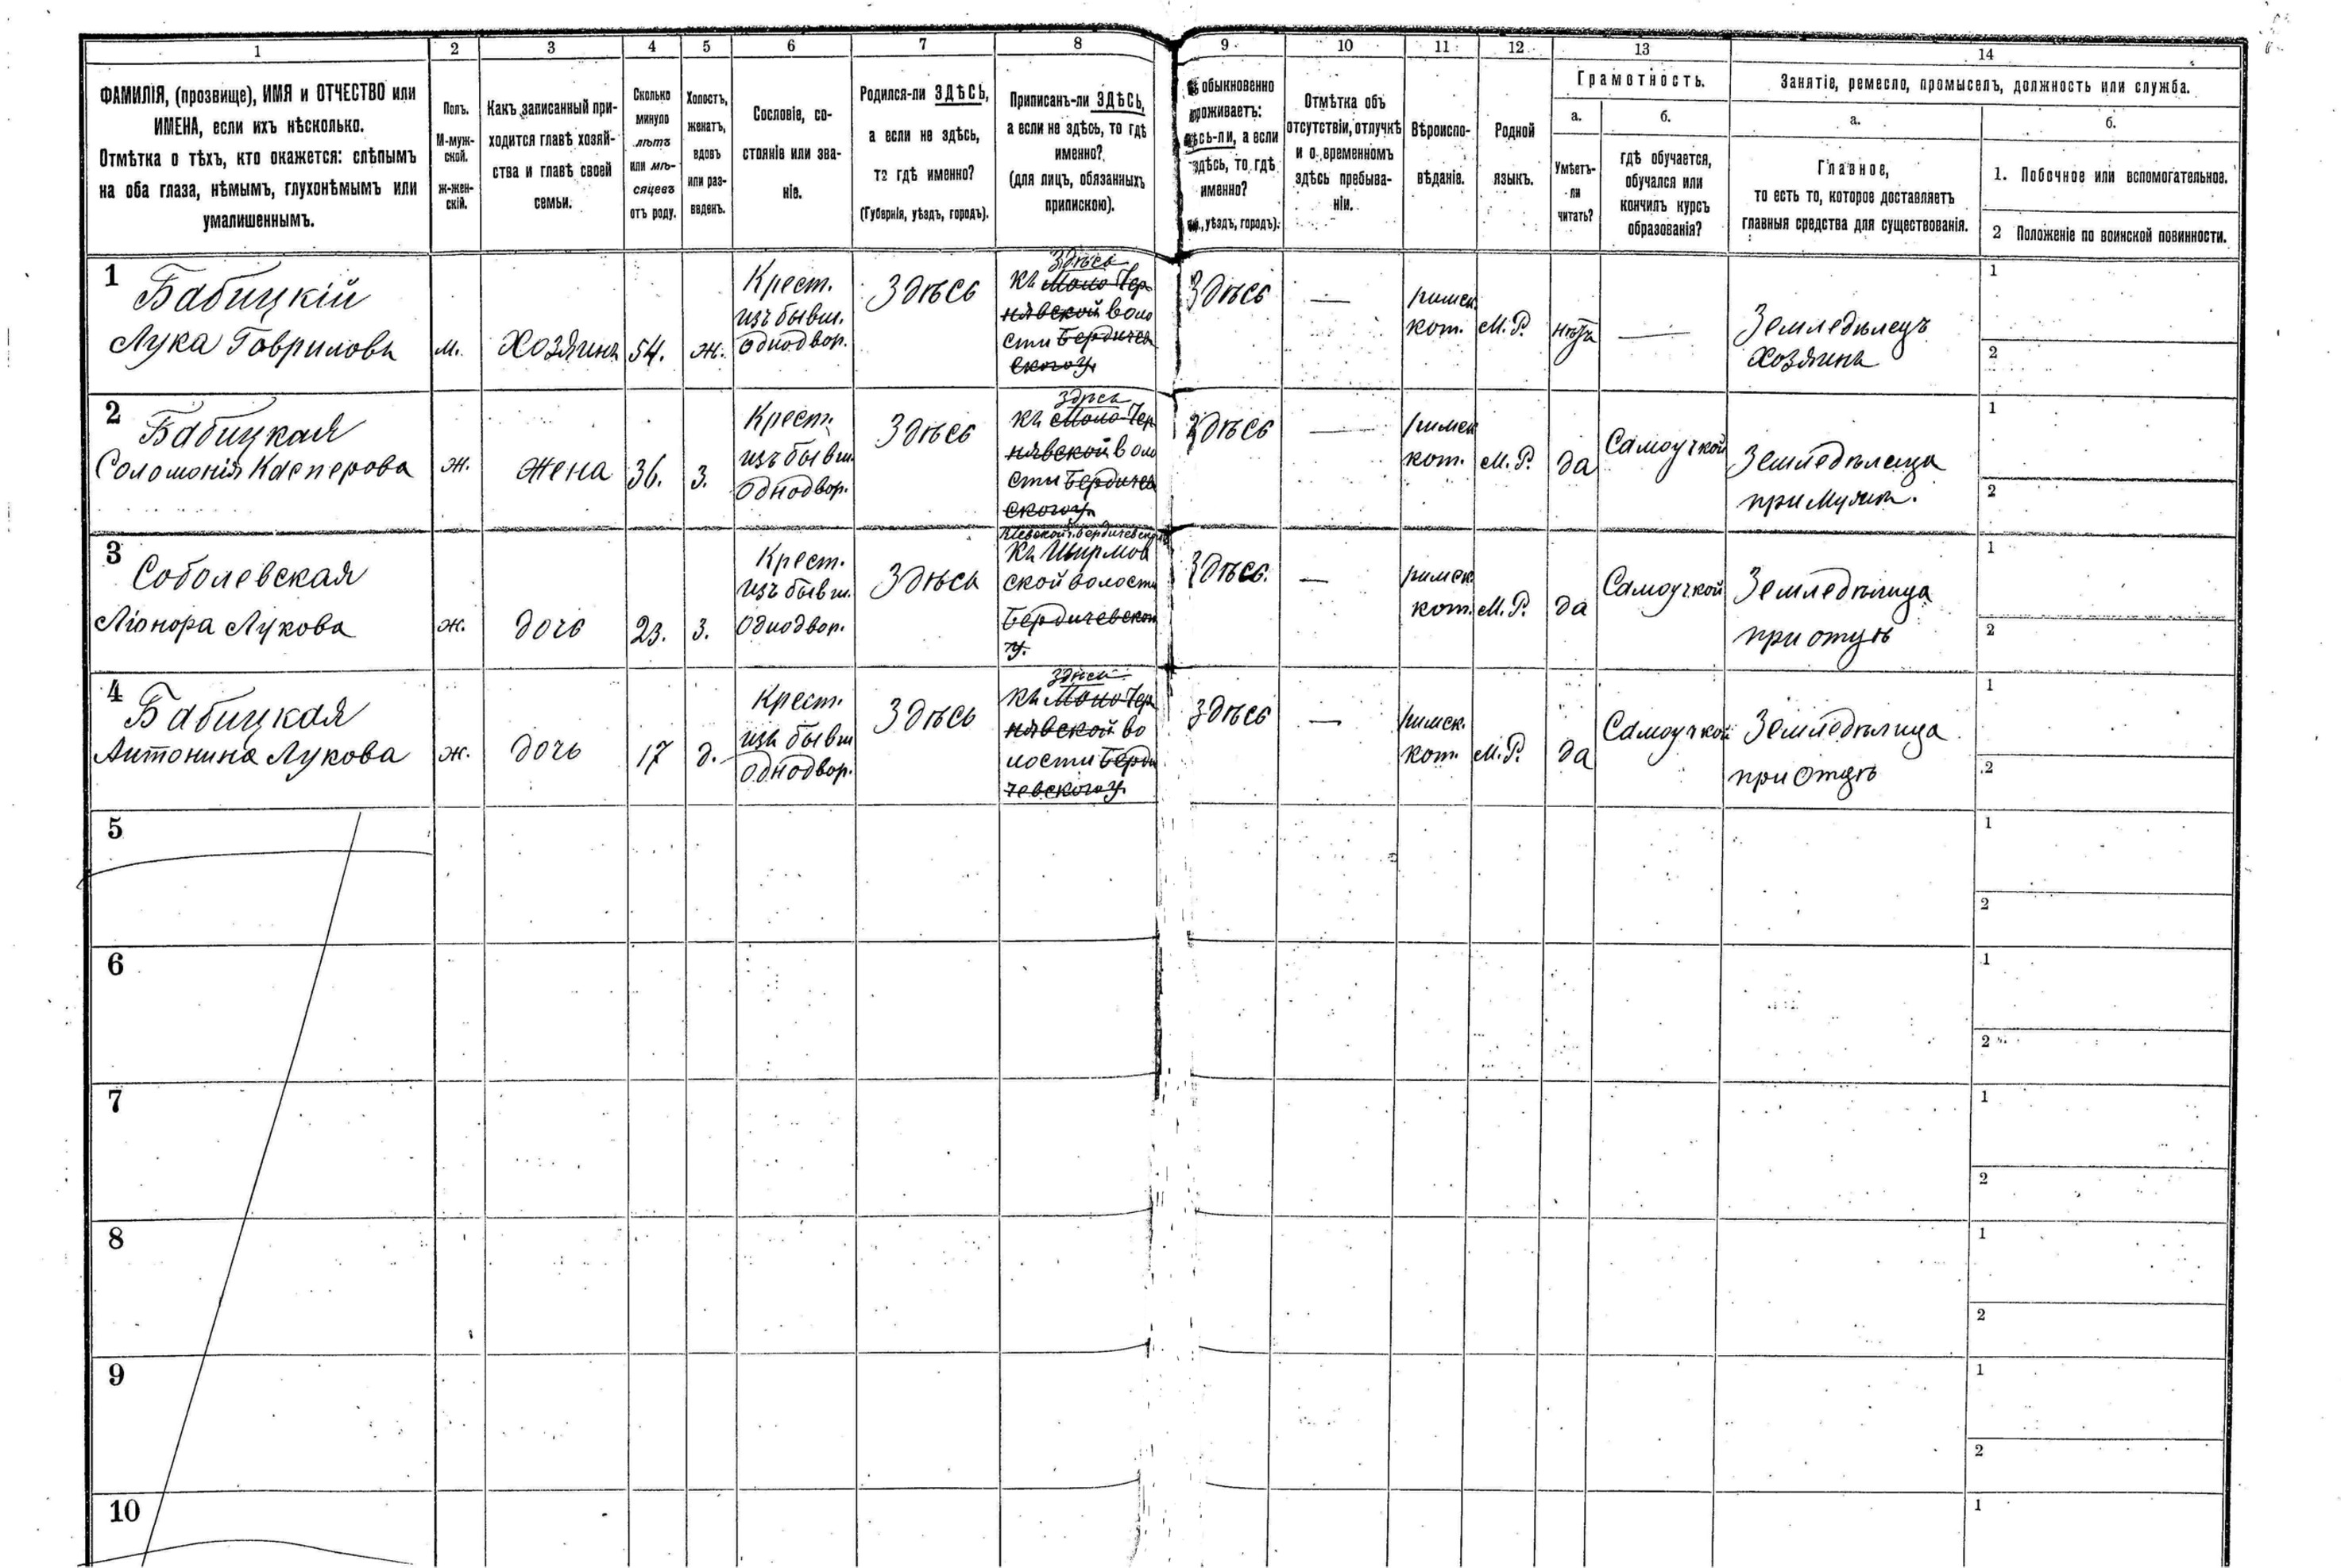 1 2 3 4 5 6 7 8 9 10 11 12 13 14
ФАМИЛІЯ, (прозвище), ИМЯ и ОТЧЕСТВО или
ИМЕНА, если ихъ нѣсколько.
Отмѣтка о тѣхъ, кто окажется: слѣпымъ
на оба глаза, нѣмымъ, глухонѣмымъ или
умалишеннымъ.
Полъ.
М-муж-
ской.
ж-жен-
скій.
Какъ записанный при-
ходится главѣ хозяй-
ства и главѣ своей
семьи.
Сколько
минуло
лѣтъ
или мѣ-
сяцевъ
отъ роду.
Холостъ,
женатъ,
вдовъ
или раз-
веденъ.
Сословіе, со-
стояніе или зва-
ніе.
Родился-ли ЗДѢСЬ,
а если не здѣсь,
то гдѣ именно?
(Губернія, уѣздъ, городъ).
Приписанъ-ли ЗДѢСЬ,
а если не здѣсь, то гдѣ
именно?
(для лицъ, обязанныхъ
припискою).
обыкновенно
проживаетъ:
здѣсь-ли, а если
здѣсь, то гдѣ
именно?
уѣздъ, городъ).
Отмѣтка объ
отсутствіи, отлучкѣ
и о временномъ
здѣсь пребыва-
ніи.
Вѣроиспо-
вѣданіе.
Родной
языкъ.
Грамотность.
а.
Умѣетъ-
ли
читать?
б.
гдѣ обучается,
обучался или
кончилъ курсъ
образованія?
Занятіе, ремесло, промыселъ, должность или служба.
а.
Главное,
то есть то, которое доставляетъ
главныя средства для существованія.
б.
1. Побочное или вспомогательное.
2 Положеніе по воинской повинности.
1
Бабицкій
Лука Гавриловъ
м.
Хозяинъ
54.
ж.
Крест.
изъ бывш.
однодвор.
Здѣсь
Здѣсь
къ Моло Чер
нявской воло
сти Бердичев
ского у.
Здѣсь
—
римск.
кат.
М. Р.
нѣтъ
—
Земледѣлецъ
хозяинъ
1
2
2
Бабицкая
Соломонія Касперова
ж.
жена
36.
з.
Крест.
изъ бывш.
однодвор.
Здѣсь
Здѣсь
къ Моло Чер
нявской воло
сти Бердичев
ского у.
Здѣсь
—
римск
кат.
М. Р.
да
Самоучкой
Земледѣлица
при мужѣ.
1
2
3
Соболевская
Ліонора Лукова
ж.
дочь
23.
з.
Крест.
изъ бывш.
однодвор.
Здѣсь
къ Ширмов
ской волости
Бердичевского
у.
Здѣсь.
—
римск
кат.
М. Р.
да
Самоучкой
Земледѣлица
при отцѣ
1
2
4
Бабицкая
Антонина Лукова
ж.
дочь
17
д.
Крест.
изъ бывш
однодвор.
Здѣсь
Здѣсь
къ Моло Чер
нявской во
лости Берди
чевского у.
Здѣсь
—
римск.
кат.
М. Р.
да
Самоучкой
Земледѣлица
при отцѣ
1
2
5
1
2
6
1
2
7
1
2
8
1
2
9
1
2
10
1